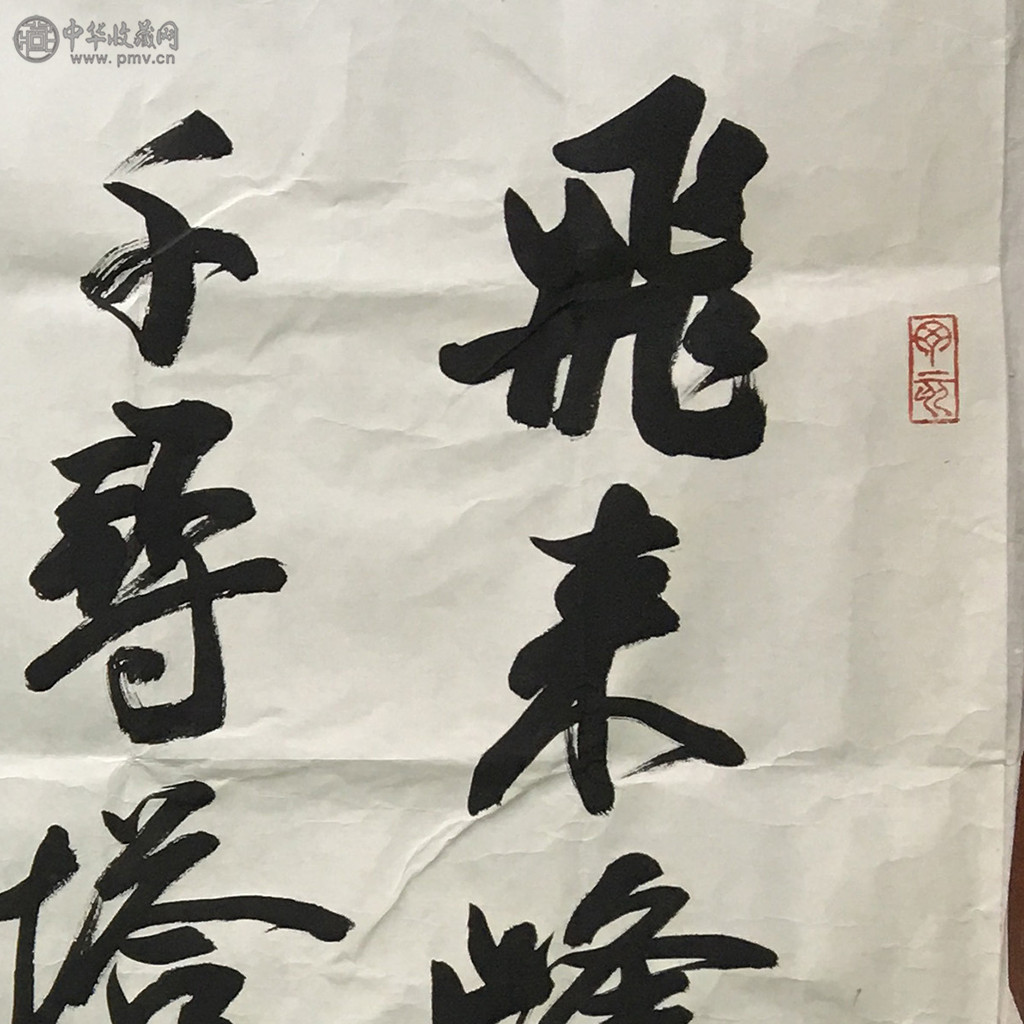 飛来峰
千尋塔
中华收藏网
www.pmv.cn